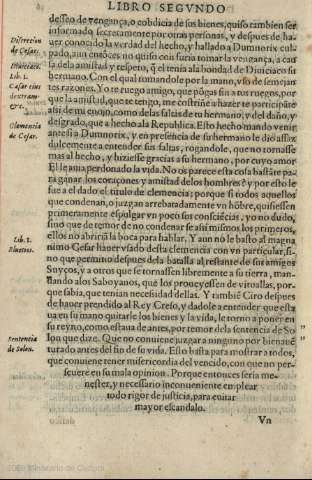 LIBRO SEGVNDO
desseo de vengança, o cobdicia de sus bienes, quiso tambien ser
informado secretamente por otras personas, y despues de ha-
uer conocido la verdad del hecho, y hallado a Dumnorix culpado,
aun entonces no quiso con furia tomar la vengança, a
la dela amistad y respeto, q̃ el tenia ala bondad de Diuiciaco su
hermano. Con el qual tomandole por la mano, vso de semejan
tes razones. Yo te ruego amigo, que pōgas fin a tus ruegos, por
que la amistad, que te tengo, me costriñe a hazer te participāte
assi de mi enojo, como delas faltas de tu hermano, y del daño, y
desgrado, que a hecho ala Republica. Esto hecho mando venir
antesi a Dumnorix, y en presēcia de su hermano le dio assaz
dulcemente a entender sus faltas, rogandole, que no tornasse
mas al hecho, y hiziesse gracias a su hermano, por cuyo amor
El le auia perdonado la vida. No os parece esta cosa bastāte pa
ra ganar los coraçones y amistad delos hombres? y por esto le
fue a el dado el titulo de clemencia: porque si todos aquellos
que condenan, o juzgan arrebatadamente vn hōbre, quisiessen
primeramente espulgar vn poco sus consciēcias, yo no dudo,
sino que de temor de no condenar se assi mismos los primeros,
ellos no abririā la boca para hablar. Y aun no le basto al magna
nimo Cesar hauer vsado desta clemencia con vn particular, si-
no que permitio despues dela batalla al restante de sus amigos
Suyços, y a otros que se tornassen libremente a su tierra, man-
dando alos Saboyanos, quē los proueyessen de vituallas, por-
que sabia, que tenian necessidad dellas. Y tambiē Ciro despues
de hauer prendido al Rey Creso, y dadole a entender que esta
ua en su mano quitarle los bienes y la vida, le torno a poner en
su reyno, como estaua de antes, por temor dela sentencia de So
lon que dize. Que no conuiene juzgar a ninguno por bienauē
turado antes del fin de su vida. Esto basta para mostrar a todos,
que conuiene tener misericordia del vencido, con que no per-
seuere en su mala opinion. Porque entonces seria me-
nester, y necessario inconueniente emplear
todo rigor de justicia, para euitar
mayor escandalo.
Vn
Discrecion
de Cesar.
Diuiciaco.
Lib. 1.
Clemencia
de Cesar.
Lib. 1.
Sentencia
de Solon.